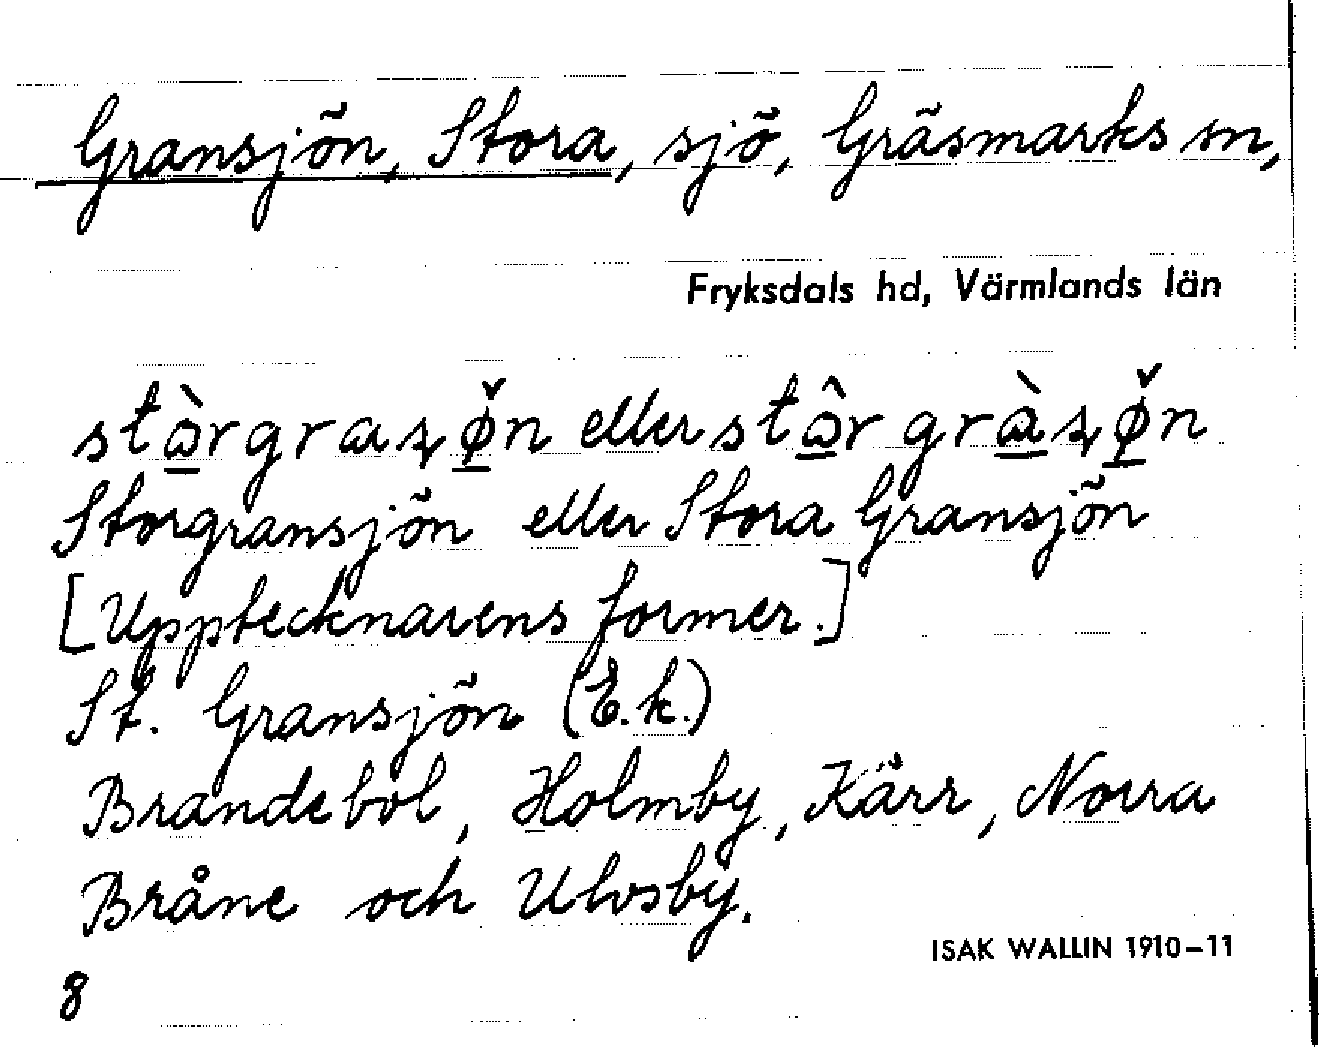 Gransjön, Stora, sjö, Gräsmarks sn,
Fryksdals hd, Värmlands län
eller
Storgransjön eller Stora Gransjön
[Upptecknarens former.]
St. Gransjön (E.k.)
Brandebol, Holmby, Kärr, Norra
Bråne och Ulvsby.
ISAK WALLIN 1910–11
8